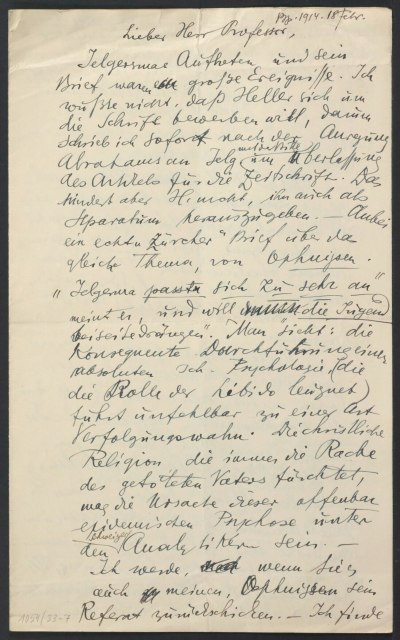 Bp. 1914. 18 Febr.
Lieber Herr Professor,
Jelgersmas Auftreten und sein
Brief waren große Ereignisse. Ich
wußte nicht, daß Heller sich um
die Schrift bewerben will, darum
schrieb ich sofort nach der Anregung
Abrahams an Jelg um Überlassung
des Artikels für die Zeitschrift. Das
hindert aber H. nicht, ihn auch als
Separatum herauszugeben. —
ein echter „Zürcher" Brief über das
gleiche Thema, von Ophuijsen.
„Jelgersma passte sich zu sehr an"
meint er, und will die Jugend
beiseitedrängen". Man sieht: die
konsequente Durchführung einer
absoluten Ich-Psychologie (die
die Rolle der Libido leugnet)
führt unfehlbar zu einer Art
Verfolgungswahn. Die christliche
Religion die immer die Rache
des getöteten Vaters fürchtet,
mag die Ursache dieser offenbar
epidemischen Psychose unter
den Schweizer Analytikern sein. —
Ich werde, wenn Sie es
auch meinen, Ophuijsen sein
Referat zurückschicken. — Ich finde
1054/33-7